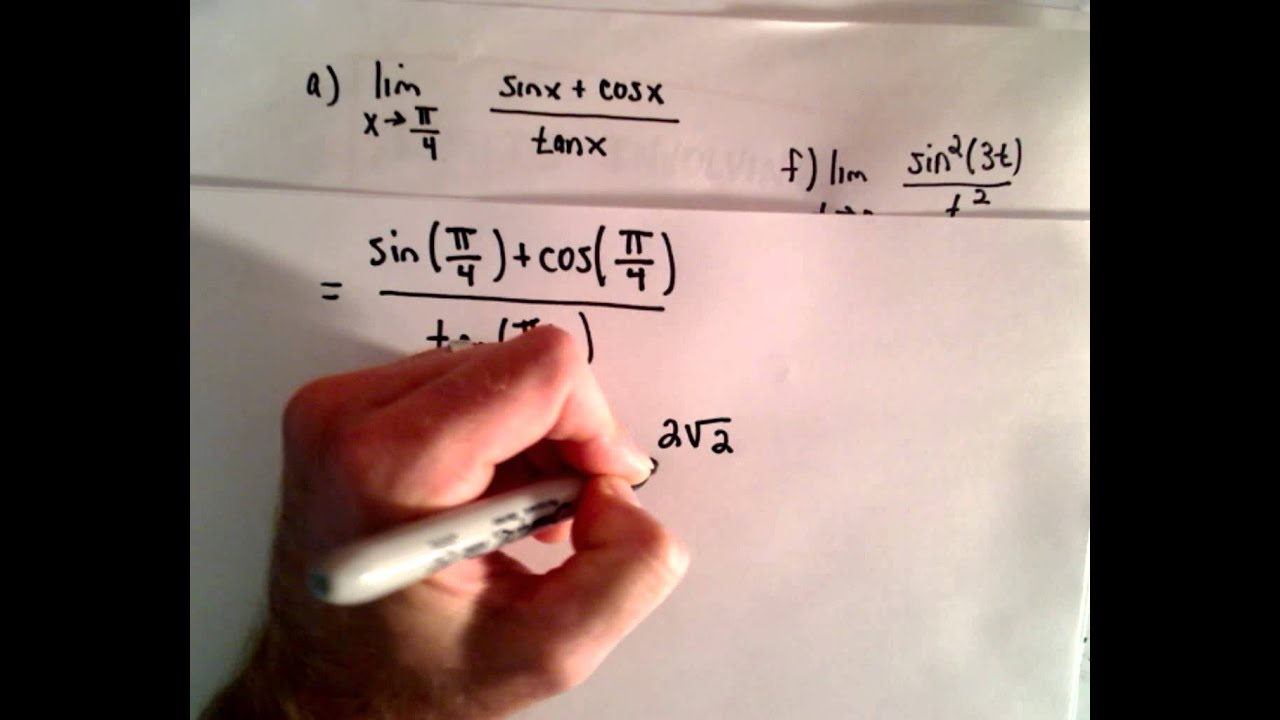 a) lim x→π/4 (sinx + cosx)/tanx
f) lim sin²(3t)/t²
= (sin(π/4) + cos(π/4))/
2√2